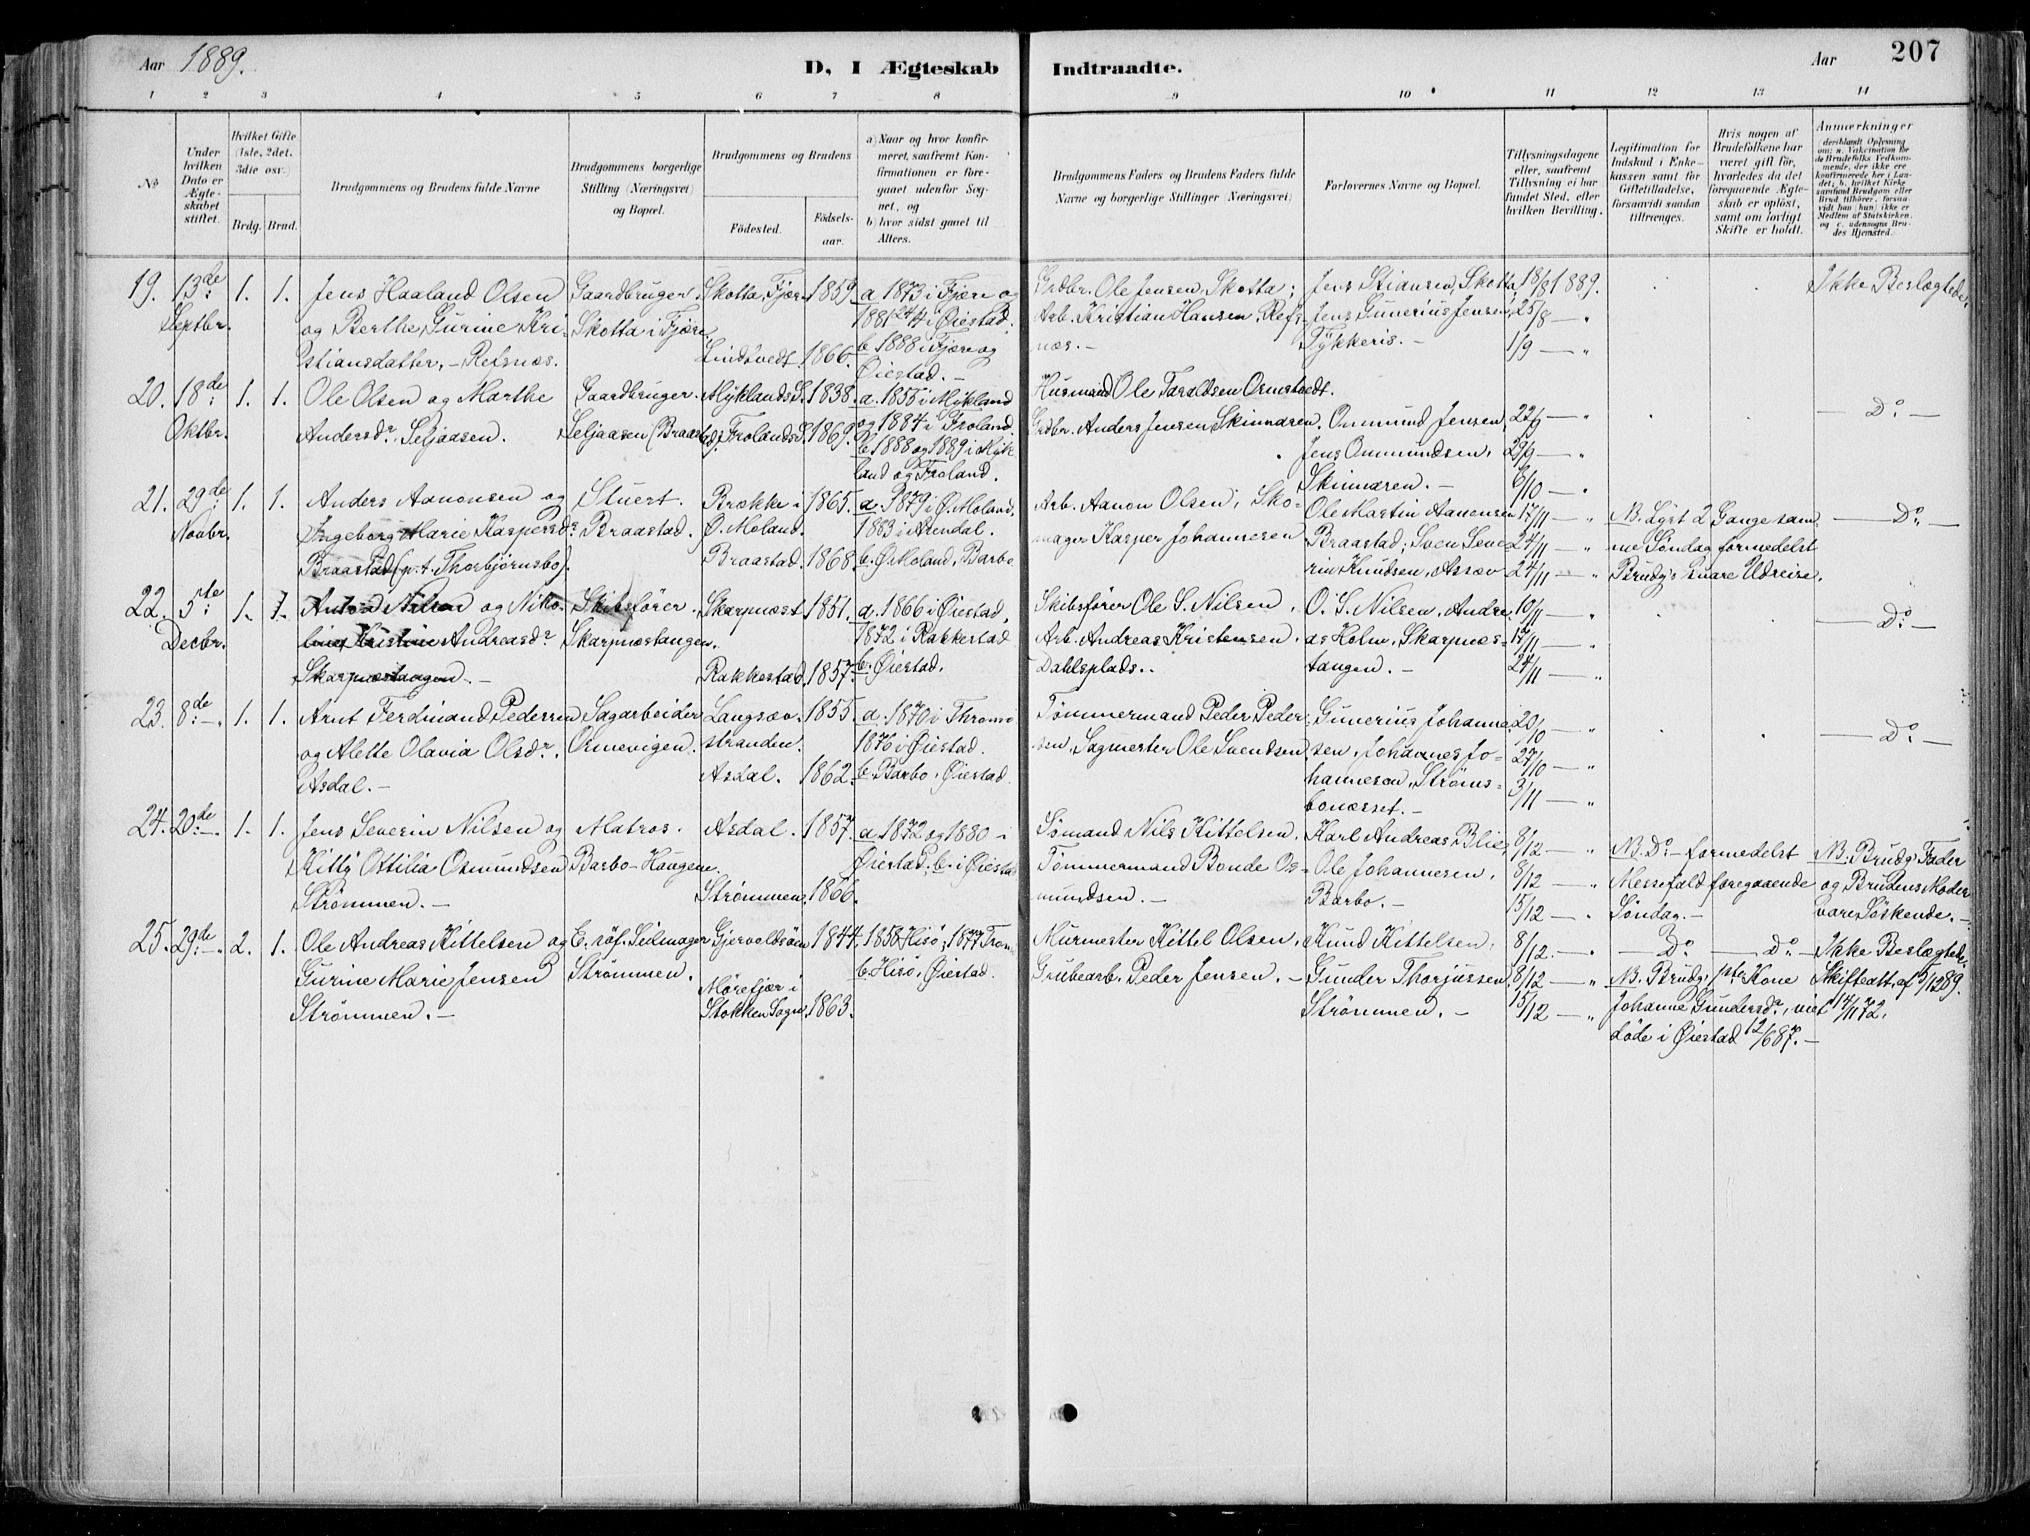 Aar 1889.
D, I Ægteskab Indtraadte.
Aar 207
1 2 3 4 5 6 7 8 9 10 11 12 13 14
No
Under hvilken Dato er Ægteskabet stiftet.
Hvilket Gifte (1ste, 2det, 3die osv.)
Brdg. Brud.
Brudgommens og Brudens fulde Navne
Brudgommens borgerlige Stilling (Næringsvei) og Bopæl.
Brudgommens og Brudens
Fødested. Fødselsaar.
a) Naar og hvor konfirmeret, saafremt Konfirmationen er foregaaet udenfor Sognet, og
b) hvor sidst gaaet til Alters.
Brudgommens Faders og Brudens Faders fulde Navne og borgerlige Stillinger (Næringsvei)
Forlovernes Navne og Bopæl.
Tillysningsdagene eller, saafremt Tillysning ei har fundet Sted, efter hvilken Bevilling.
Legitimation for Indskud i Enkekassen samt for Giftetilladelse, forsaavidt saadan tiltrænges.
Hvis nogen af Brudefolkene har været gift før, hvorledes da det foregaaende Ægteskab er opløst, samt om lovligt Skifte er holdt.
Anmærkninger (deriblandt Oplysning om: a. Vakcination for de Brudefolks Vedkommende, der ikke ere konfirmerede her i Landet; b. hvilket Kirkesamfund Brudgom eller Brud tilhører, forsaavidt han (hun) ikke er Medlem af Statskirken, og c. udensogns Brudes Hjemsted.
19. 13de Septbr. 1. 1.
Jens Haaland Olsen
og Berthe Gurine Kri-
stiansdatter, - Refsnæs.
Gaardbruger.
Skotta i Fjære
Skotta, Fjære 1859.
Lindtvedt. 1866.
a 1873 i Fjære og
1881 24/4 i Øiestad.
b 1888 i Fjære og
Øiestad. -
Grdbr. Ole Jensen, Skotta;
Arb. Kristian Hansen, Refs-
næs. -
Jens Stiansen, Skotta,
Jens Gunerius Jensen,
Tykkeris. -
18/8 1889.
25/8 - "
1/9 - "
Ikke Beslægtede.
20. 18de Oktbr. 1. 1.
Ole Olsen og Marthe
Andersdr. Seljaasen.
Gaardbruger.
Seljaasen (Braastad).
Myklands S. 1838.
Frolands S. 1869.
a. 1855 i Mykland
og 1884 i Froland.
b 1888 og 1889 i Myk
land og Froland.
Husmand Ole Taraldsen Ormstvedt.
Grdbr. Anders Jensen Skinnaren.
Ommund Jensen,
Jens Ommundsen,
Skinnaren. -
22/9 - "
29/9 - "
6/10 - "
- Do -
21. 29de Novbr. 1. 1.
Anders Aanonsen og
Ingeborg Marie Kaspersdr.
Braastad (p. t. Thorbjørnsbo).
Stuert.
Braastad.
Brække i 1865.
Ø. Moland.
Braastad. 1868
a. 1879 i Ø. Moland,
1883 i Arendal.
b. Ø. Moland, Barbo
Arb. Aanon Olsen, Sko-
mager Kasper Johannesen
Ole Martin Aanonsen
Braastad; Sven Seve-
rin Knudsen, Assæv
17/11 - "
24/11 - "
24/11 - "
NB. Lyst 2 Gange sam
me Søndag formedelst
Brudg's snare Udreise.
- Do. -
22. 5te Decbr. 1. 1.
Anton Nilsen og Niko-
line Kristine Andreasdr.
Skarpnæstangen. -
Skibsfører.
Skarpnæstangen.
Skarpnæst. 1851.
Rakkestad. 1857.
a. 1866 i Øiestad,
1872 i Rakkestad
b. Øiestad.
Skibsfører Ole S. Nilsen,
Arb. Andreas Kristensen,
Dahlsplads..
O. S. Nilsen, Andre-
as Holm, Skarpnæs-
tangen. -
10/11 - "
17/11 - "
24/11 - "
- Do. -
23. 8de - 1. 1.
Arnt Ferdinand Pedersen
og Alette Olavia Olsdr.
Asdal. -
Sagarbeider
Ormevigen.
Langsæv- 1855.
stranden.
Asdal. 1862.
a. 1870 i Thromø
1876 i Øiestad.
b. Barbo, Øiestad.
Tømmermand Peder Peder
sen, Sagmester Ole Svendsen
Gunerius Johanne-
sen, Johannes Jo-
hannesen, Strøms-
bonæsset. -
20/10 - "
27/10 - "
3/11 - "
- Do. -
24. 20de - 1. 1.
Jens Severin Nilsen og
Kitty Ottilia Osmundsen
Strømmen. -
Matros.
Barbo-Haugene
Asdal. 1857.
Strømmen. 1866.
a 1872 og 1880 i
Øiestad; b. i Øiestad
Sømand Nils Kittelsen.
Tømmermand Bonde Os-
mundsen. -
Karl Andreas Blie,
Ole Johannesen,
Barbo. -
8/12 - "
8/12 - "
15/12 - "
NB. Do - formedelst
Messefald foregaaende
Søndag. -
NB. Brudgs Fader
og Brudens Moder
vare Søskende. -
25. 29de - 2. 1.
Ole Andreas Kittelsen og
Gurine Marie Jensen
Strømmen. -
E., søf. Seilmager
Strømmen.
Gjervoldsøen 1844.
Mørefjær i
Stokken Sogn. 1863.
1858 Hisø; 1877 Trom
b. Hisø, Øiestad.
Murmester Kittel Olsen.
Grubearb. Peder Jensen. -
Knud Kittelsen,
Gunder Thorjussen,
Strømmen. -
8/12. - "
8/12 - "
15/12 - "
- Do - - Do. -
NB. Brudg's 1ste Kone
Johanne Gundersdr., viet 14/11 72,
døde i Øiestad 12/6 87. -
Ikke Beslægtede.
Skifteatt. af 5/12 89.